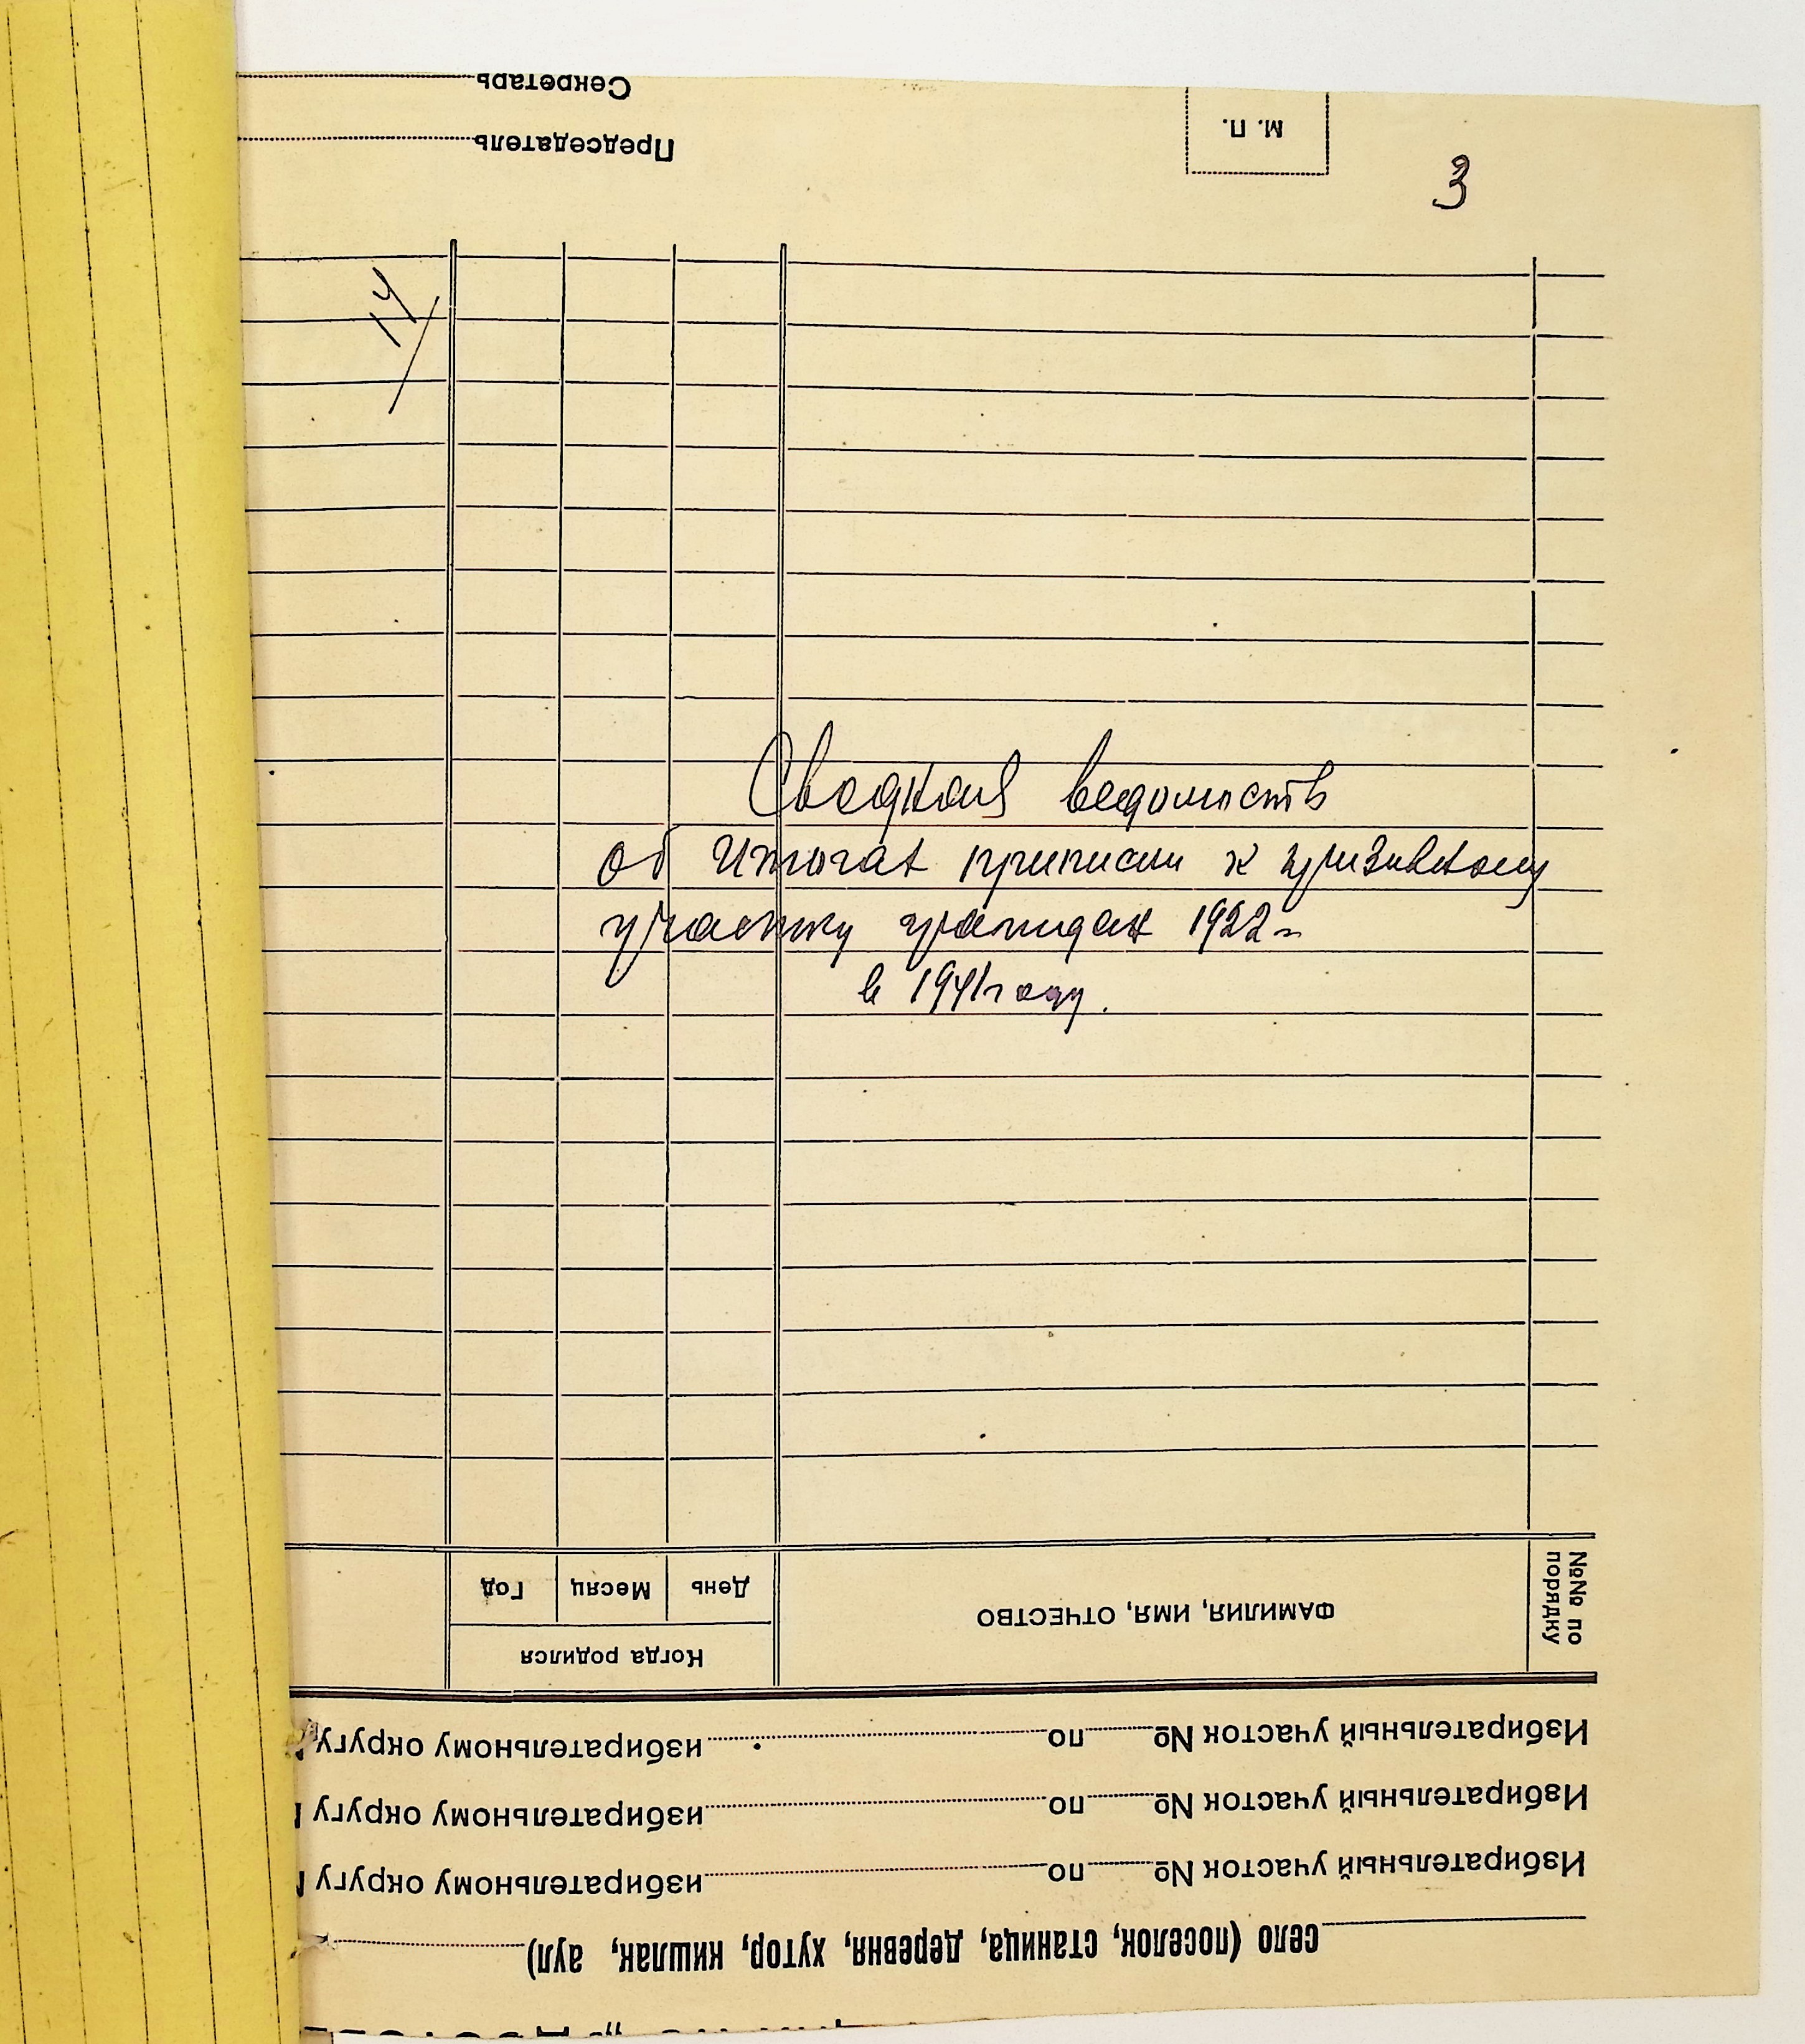 3
14
Сводная ведомость
об итогах приписки к призывному
участку граждан 1922 г.
в 1941 году.
село (поселок, станица, деревня, хутор, кишлак, аул)
Избирательный участок № по избирательному округу
Избирательный участок № по избирательному округу
Избирательный участок № по избирательному округу
№№ по порядку
ФАМИЛИЯ, ИМЯ, ОТЧЕСТВО
Когда родился
День Месяц Год
М. П.
Председатель
Секретарь